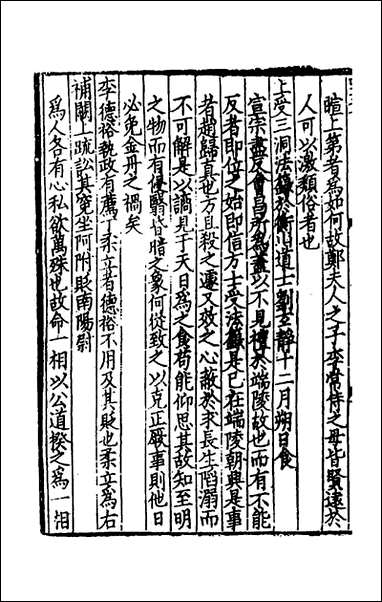 暄上第者為如何故鄭夫人之子李常侍之母皆賢遠於
人可以激類俗者也
上受三洞法籙於衡山道士劉玄靜十二月朔日食
宣宗盡反會昌所為蓋以不見禮於端陵故也而有不能
反者即位之始即信方士受法籙是已在端陵朝興是事
者趙歸真也方且殺之遽又效之心蔽於求長生陷溺而
不可解是以謫見于天日為之食苟能仰思其故知至明
之物而有侵翳昏暗之象何從致之以克正厥事則他日
必免金丹之禍矣
李德裕執政有薦丁柔立者德裕不用及其貶也柔立為右
補闕上疏訟其冤坐阿附貶南陽尉
為人各有心私欲萬殊也故命一相以公道揆之為一相